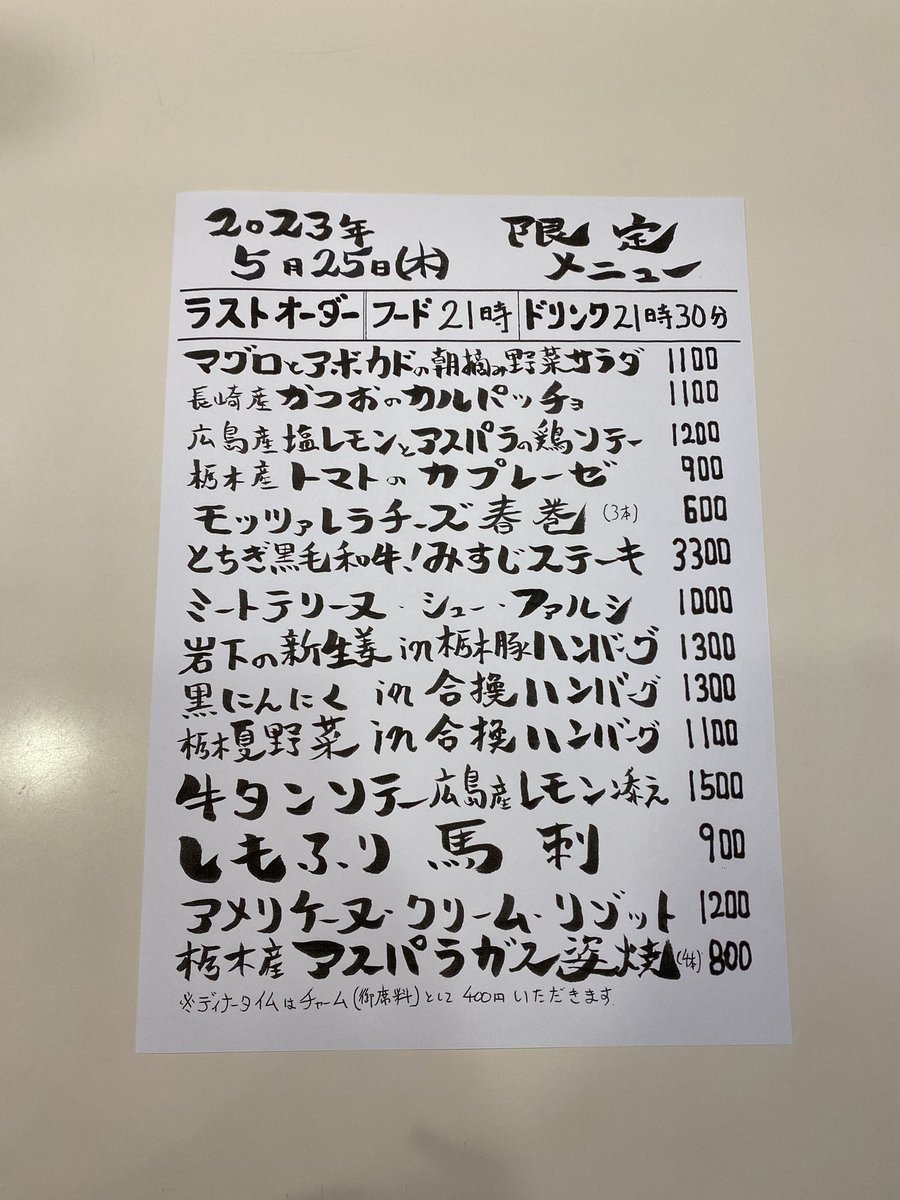 2023年
5月25日(木)
限定
メニュー
ラストオーダー フード21時 ドリンク21時30分
マグロとアボカドの朝摘み野菜サラダ 1100
長崎産かつおのカルパッチョ 1100
広島産塩レモンとアスパラの鶏ソテー 1200
栃木産トマトのカプレーゼ 900
モッツァレラチーズ春巻(3本) 600
とちぎ黒毛和牛!みすじステーキ 3300
ミートテリーヌ・シュー・ファルシ 1000
岩下の新生姜in栃木豚ハンバーグ 1300
黒にんにくin合挽ハンバーグ 1300
栃木夏野菜in合挽ハンバーグ 1100
牛タンソテー広島産レモン添え 1500
しもふり馬刺 900
アメリケーヌ・クリーム・リゾット 1200
栃木産アスパラガス姿焼(4本) 800
※ディナータイムはチャーム(御席料)として400円いただきます